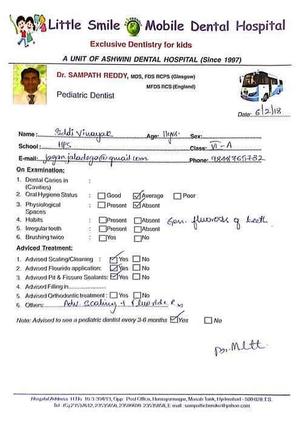 Little Smile Mobile Dental Hospital
Exclusive Dentistry for kids
A UNIT OF ASHWINI DENTAL HOSPITAL (Since 1997)
Dr. SAMPATH REDDY, MDS, FDS RCPS (Glasgow)
MFDS RCS (England)
Pediatric Dentist
Date: 6/2/18
Name: Siddi Vinayak Age: 11yrs Sex:
School: HPS Class: VI-A
E-mail: @gmail.com Phone:
On Examination:
1. Dental Caries in (Cavities) :
2. Oral Hygiene Status : Good Average Poor
3. Physiological Spaces : Present Absent
4. Habits : Present Absent Gen. fluorosis of teeth
5. Irregular teeth : Present Absent
6. Brushing twice : Yes No
Adviced Treatment:
1. Advised Scaling/Cleaning : Yes No
2. Advised Flouride application: Yes No
3. Advised Pit & Fissure Sealants: Yes No
4. Advised Filling in
5. Advised Orthodontic treatment : Yes No
6. Others: Adv. Scaling & Fluoride
Note: Advised to see a pediatric dentist every 3-6 months Yes No
Hospital Address: Opp. Post Office, Hyderabad